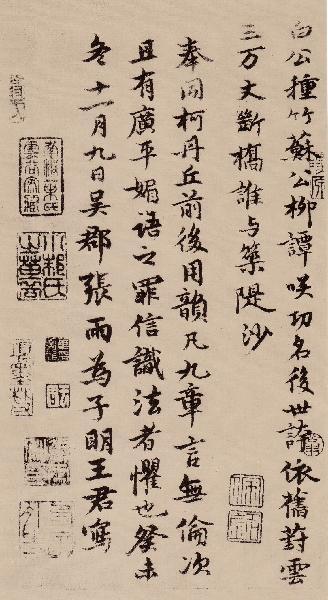 白公種竹蘇公柳譚咲功名後世誇依舊蔚雲
三万丈斷橋誰与築隄沙
奉同柯丹丘前後用韻凡九章言無倫次
且有廣平媚語之罪信識法者懼也癸未
冬十一月九日吳郡張雨為子明王君寫